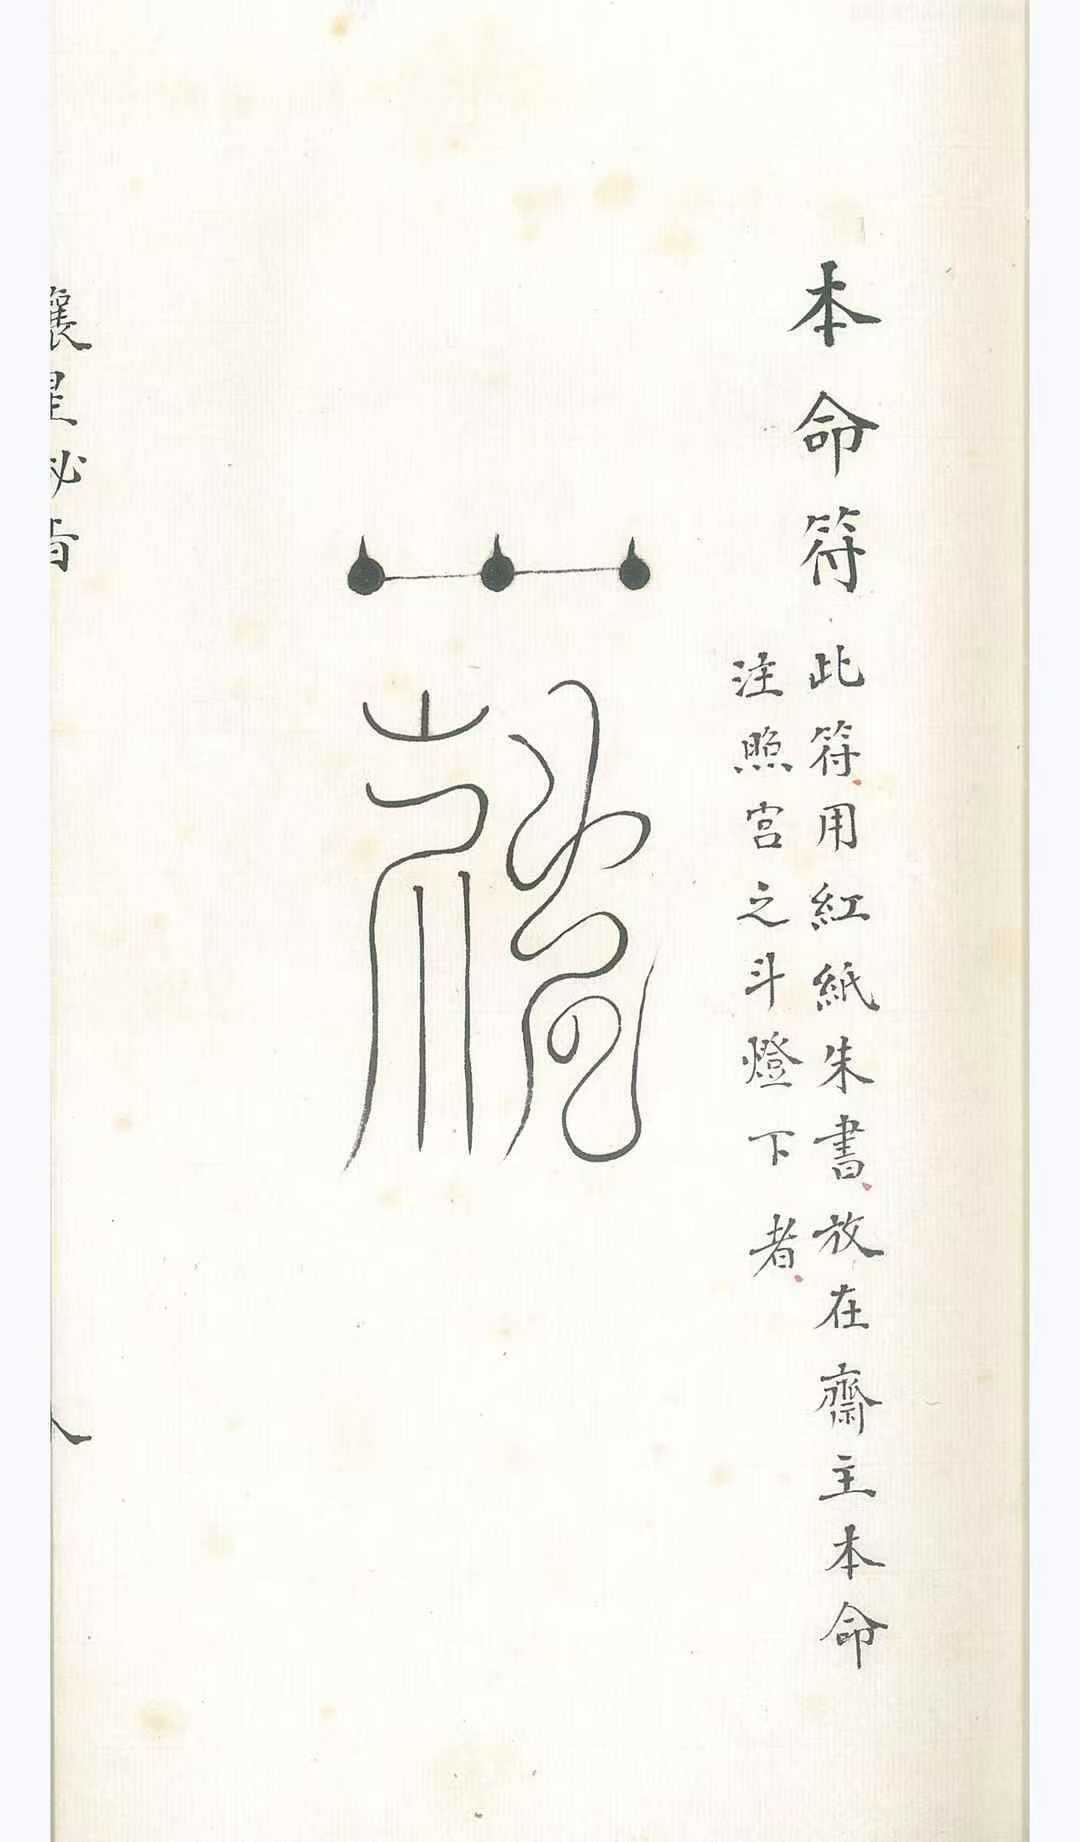 本命符
此符用紅紙朱書放在齋主本命
注照宮之斗燈下者
禳星秘旨